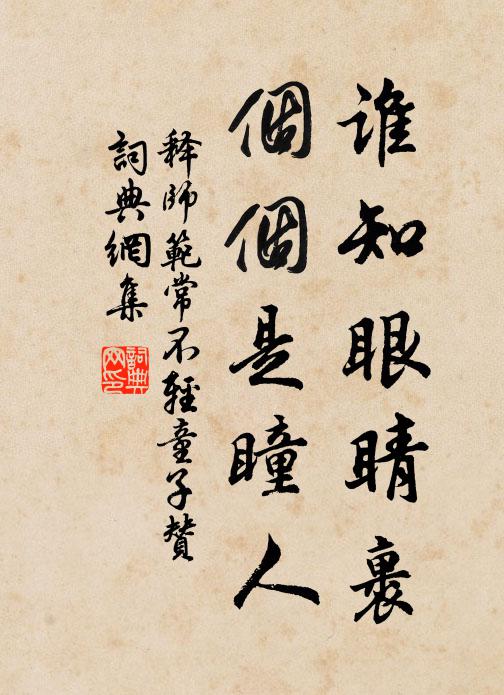 谁知眼睛裹
個個是瞳人
释師範常不輕童子贊
詞典網集
詞典网印